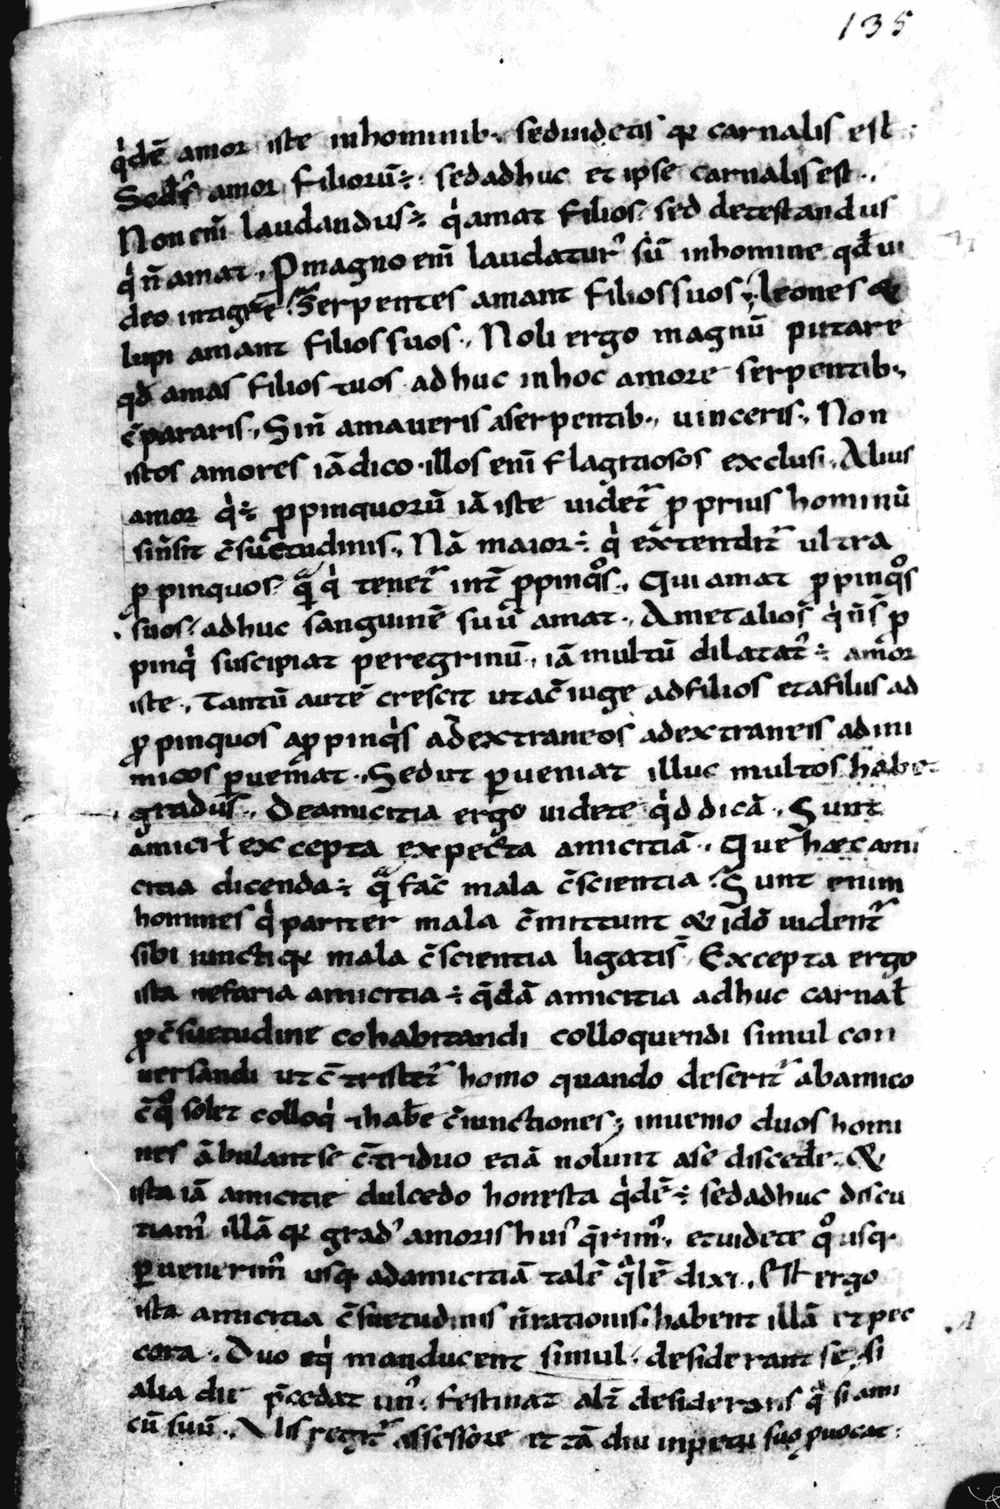 135
q̇dē amor iste inhominib; seduidetis qr carnalis est
amor filiorū ÷ sedadhuc et ipse carnalis est.
Non eni laudandus ÷ q̇ amat filios sed detestandus
q̇ n̄ amat. P magno eni laudatur sū inhomine qđ ui
deo intigre Serpentes amant filios suos; leones &
lupi amant filios suos. Noli ergo magnū putare
qđ amas filios tuos adhuc inhoc amore serpentib;
c̄pararis. Sin̄ amaueris aserpentib; uinceris. Non
istos amores iādico illos eni flagitiosos exclusi. Alius
amor q̇ ÷ ꝓpinquorū iā iste uidet ꝓprius hominū
c̄suetudinis. Nā maior ÷ q̇ extendit ultra
ꝓpinquos qua q̇ tenet int ꝓpinqos. Qui amat ꝓpinqos
suos adhuc sanguinē suū amat. Amet alios q̇ n̄ s̄ ꝓ
pinq̇ suscipiat peregrinū, iā multū dilatat ÷ amor
iste. Tantū autē crescit utac̄iuge adfilios etafiliis ad
ꝓpinquos aꝓpinq̇s adextraneos adextraneis adini
micos ꝑueniat. Sedut ꝑueniat illuc multos habet
gradus. Deamicitia ergo uidete q̇d dicā. Sunt
amici excepta amicitiā. Que hæc ami
citia dicenda ÷ qua fac̄ mala c̄scientia Sunt enim
homines q̇ pariter mala c̄mittunt & ido uident
sibi iuncti qr mala c̄scientia ligatis Excepta ergo
ista nefaria amicitia ÷ q̄dā amicitia adhuc carnał
ꝓc̄suetudine cohabitandi colloquendi simul con
uersandi ut c̄tristet homo quando deserit abamico
c̄qo solet colloq̇ habe c̄iunctiones; inuenio duos homi
nes ābulant se c̄triduo etiā nolunt ase discede. &
ista iā amicitie dulcedo honesta q̇dē ÷ sedadhuc discu
tiam illā qr grad amoris hui q̄rim etuidete qo usq;
ꝑuenerim usq; adamicitiā talē qlē dixi. Est ergo
ista amicitia c̄suetudinis n̄rationis habent illā et pec
cora. Duo eq̇ manducent simul desiderant se, si
alia die p̄cedat un festinat alt desiderans si ami
cū suū. regit assessore et tā diu inpetu suo ꝓuocat